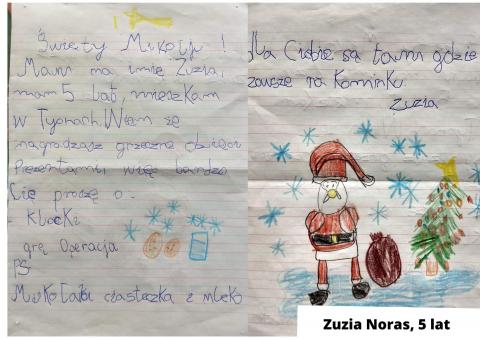 Święty Mikołju !
Mam na imię Zuzia,
mam 5 lat, mieszkam
w Tychach. Wiem że
nagradzasz grzeczne dzieci
Prezentami, więc bardzo
Cię proszę o
- klocki
grę Operacja
PS.
Mikołaju ciasteczka z mleko
dla Ciebie są tam gdzie
zawsze na Kominku.
Zuzia
Zuzia Noras, 5 lat